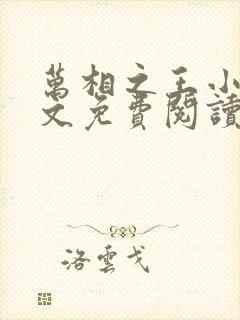 萬相之王小
文免費閱讀
洛雲戈